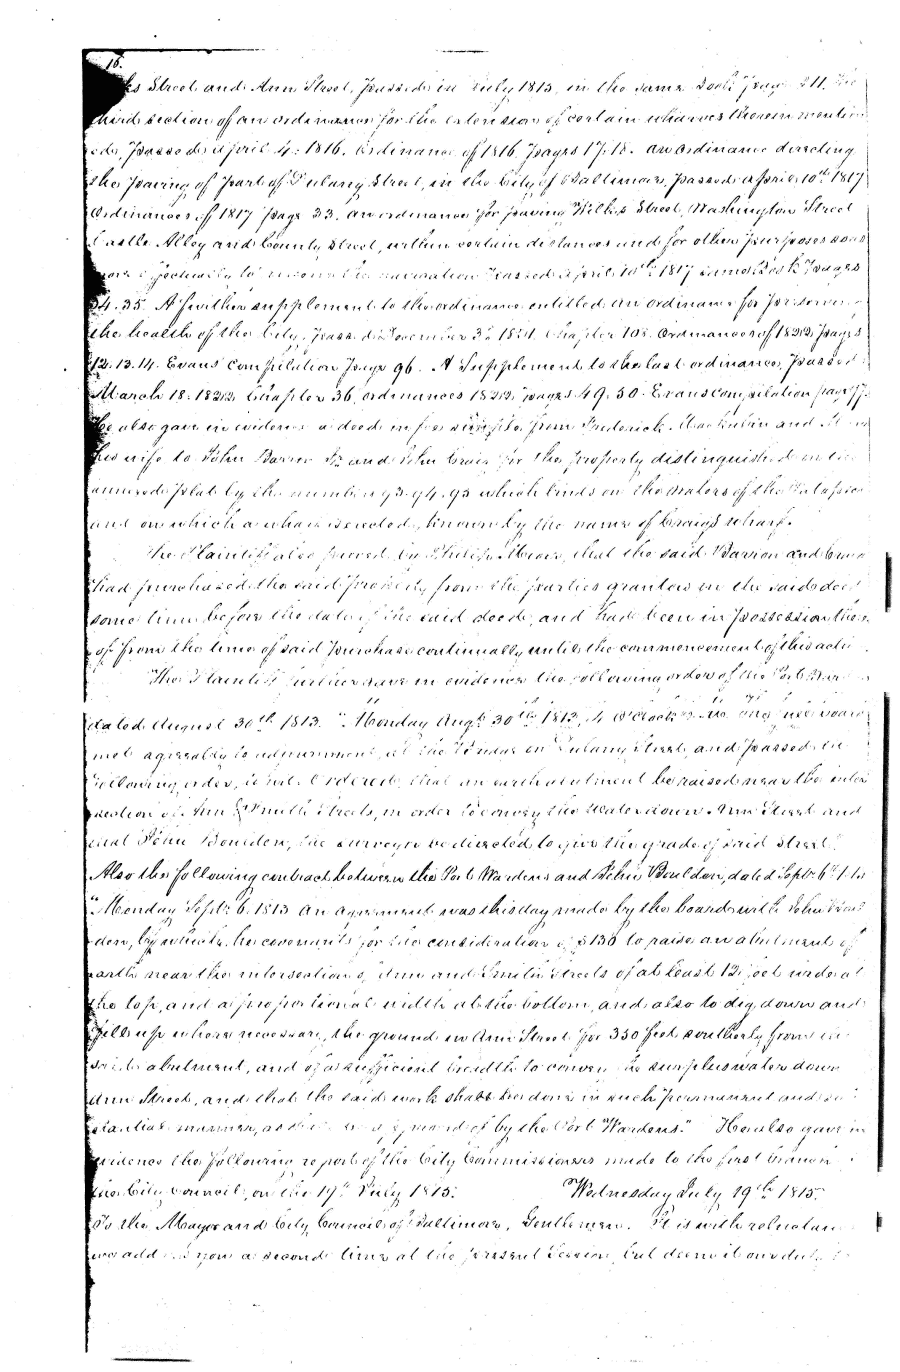 16.
Street and Ann Street, passed in July 1813, in the same Book page 211. The
third section of an ordinance for the extension of certain wharves therein mention
ed, passed April 4: 1816. Ordinance of 1816, pages 17.18. an ordinance directing
the paving of part of Dulany Street, in the City of Baltimore, passed April 10th 1817
Ordinances of 1817 page 33. an ordinance for paving Wilks Street, Washington Street
Castle Alley and County Street, within certain distances and for other purposes
more effectually to the navigation passed April 10th 1817 same Book pages
34.35. A further supplement to the ordinance entitled an ordinance for preserving
the health of the City, passed November 3. 1821. Chapter 108. Ordinances of 1822, pages
12.13.14. Evans' Compilation page 96. A Supplement to the last ordinance, passed
March 18. 1822 Chapter 36, ordinances 1822, pages 49.50. Evans compilation page
He also gave in evidence a deed in fee simple from Frederick Mackubin and
his wife to John Barron Jr. and John Craig for the property distinguished on the
annexed plat by the numbers 93.94.95 which binds on the waters of the Patapsco
and on which a wharf is erected, known by the name of Craig's wharf.
The Plaintiff also proved by Philip Moore, that the said Barron and Craig
had purchased the said property from the parties grantors in the said deed
some time before the date of the said deed, and had been in possession there
of from the time of said purchase continually until the commencement of this action.
The Plaintiff further gave in evidence the following orders of the Port Wardens
dated August 30th 1813. "Monday Augt. 30th 1813, 4 O'Clock P.M. The full board
met agreeably to adjournment, at the Bridge on Dulany Street and passed the
following order, to wit: Ordered, that an earth abutment be raised near the inter
section of Ann & Smith Streets, in order to convey the water down Ann Street and
that John Bouldin, the surveyor be directed to give the grade of said Street."
Also the following contract between the Port Wardens and John Bouldin, dated Septr. 6th 1813
"Monday Septr. 6. 1813 an agreement was this day made by the board with John Boul
den, by which he covenants for the consideration of $130 to raise an abutment of
earth near the intersection of Ann and Smith Streets of at least 12 feet wide at
the top, and a proportional width at the bottom, and also to dig down and
fill up where necessary, the ground in Ann Street for 350 feet southerly from the
said abutment, and of a sufficient breadth to convey the surplus water down
Ann Street, and that the said work shall be done in such permanent and sub
stantial manner, as by the Port Wardens." He also gave in
evidence the following report of the City Commissioners made to the first branch
the City Council, on the 19th July 1815. Wednesday July 19th 1815.
To the Mayor and City Council of Baltimore, Gentlemen. It is with reluctance
we add you a second time at the present Session, but deem it our duty